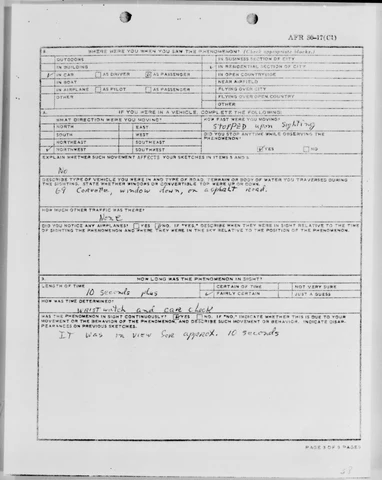 AFR 80-17(C1)
WHERE WERE YOU WHEN YOU SAW THE PHENOMENON? (Check appropriate blocks)
OUTDOORS
IN BUSINESS SECTION OF CITY
IN BUILDING
IN RESIDENTIAL SECTION OF CITY
IN CAR AS DRIVER AS PASSENGER
IN OPEN COUNTRYSIDE
IN BOAT
NEAR AIRFIELD
IN AIRPLANE AS PILOT AS PASSENGER
FLYING OVER CITY
OTHER
FLYING OVER OPEN COUNTRY
OTHER
IF YOU WERE IN A VEHICLE, COMPLETE THE FOLLOWING:
WHAT DIRECTION WERE YOU MOVING?
HOW FAST WERE YOU MOVING?
NORTH EAST
stopped upon sighting
SOUTH WEST
DID YOU STOP ANYTIME WHILE OBSERVING THE PHENOMENON?
NORTHEAST SOUTHEAST
NORTHWEST SOUTHWEST
YES NO
EXPLAIN WHETHER SUCH MOVEMENT AFFECTS YOUR SKETCHES IN ITEMS 5 AND 6.
No
DESCRIBE TYPE OF VEHICLE YOU WERE IN AND TYPE OF ROAD, TERRAIN OR BODY OF WATER YOU TRAVERSED DURING THE SIGHTING. STATE WHETHER WINDOWS OR CONVERTIBLE TOP WERE UP OR DOWN.
window down, on asphalt road.
HOW MUCH OTHER TRAFFIC WAS THERE?
None
DID YOU NOTICE ANY AIRPLANES? YES NO. IF "YES," DESCRIBE WHEN THEY WERE IN SIGHT RELATIVE TO THE TIME OF SIGHTING THE PHENOMENON AND WHERE THEY WERE IN THE SKY RELATIVE TO THE POSITION OF THE PHENOMENON.
HOW LONG WAS THE PHENOMENON IN SIGHT?
LENGTH OF TIME
CERTAIN OF TIME
NOT VERY SURE
10 seconds plus
FAIRLY CERTAIN
JUST A GUESS
HOW WAS TIME DETERMINED?
wrist watch and care clock
WAS THE PHENOMENON IN SIGHT CONTINUOUSLY? YES NO. IF "NO," INDICATE WHETHER THIS IS DUE TO YOUR MOVEMENT OR THE BEHAVIOR OF THE PHENOMENON, AND DESCRIBE SUCH MOVEMENT OR BEHAVIOR. INDICATE DISAPPEARANCES ON PREVIOUS SKETCHES.
It was in view for approx. 10 seconds
PAGE 3 OF 5 PAGES